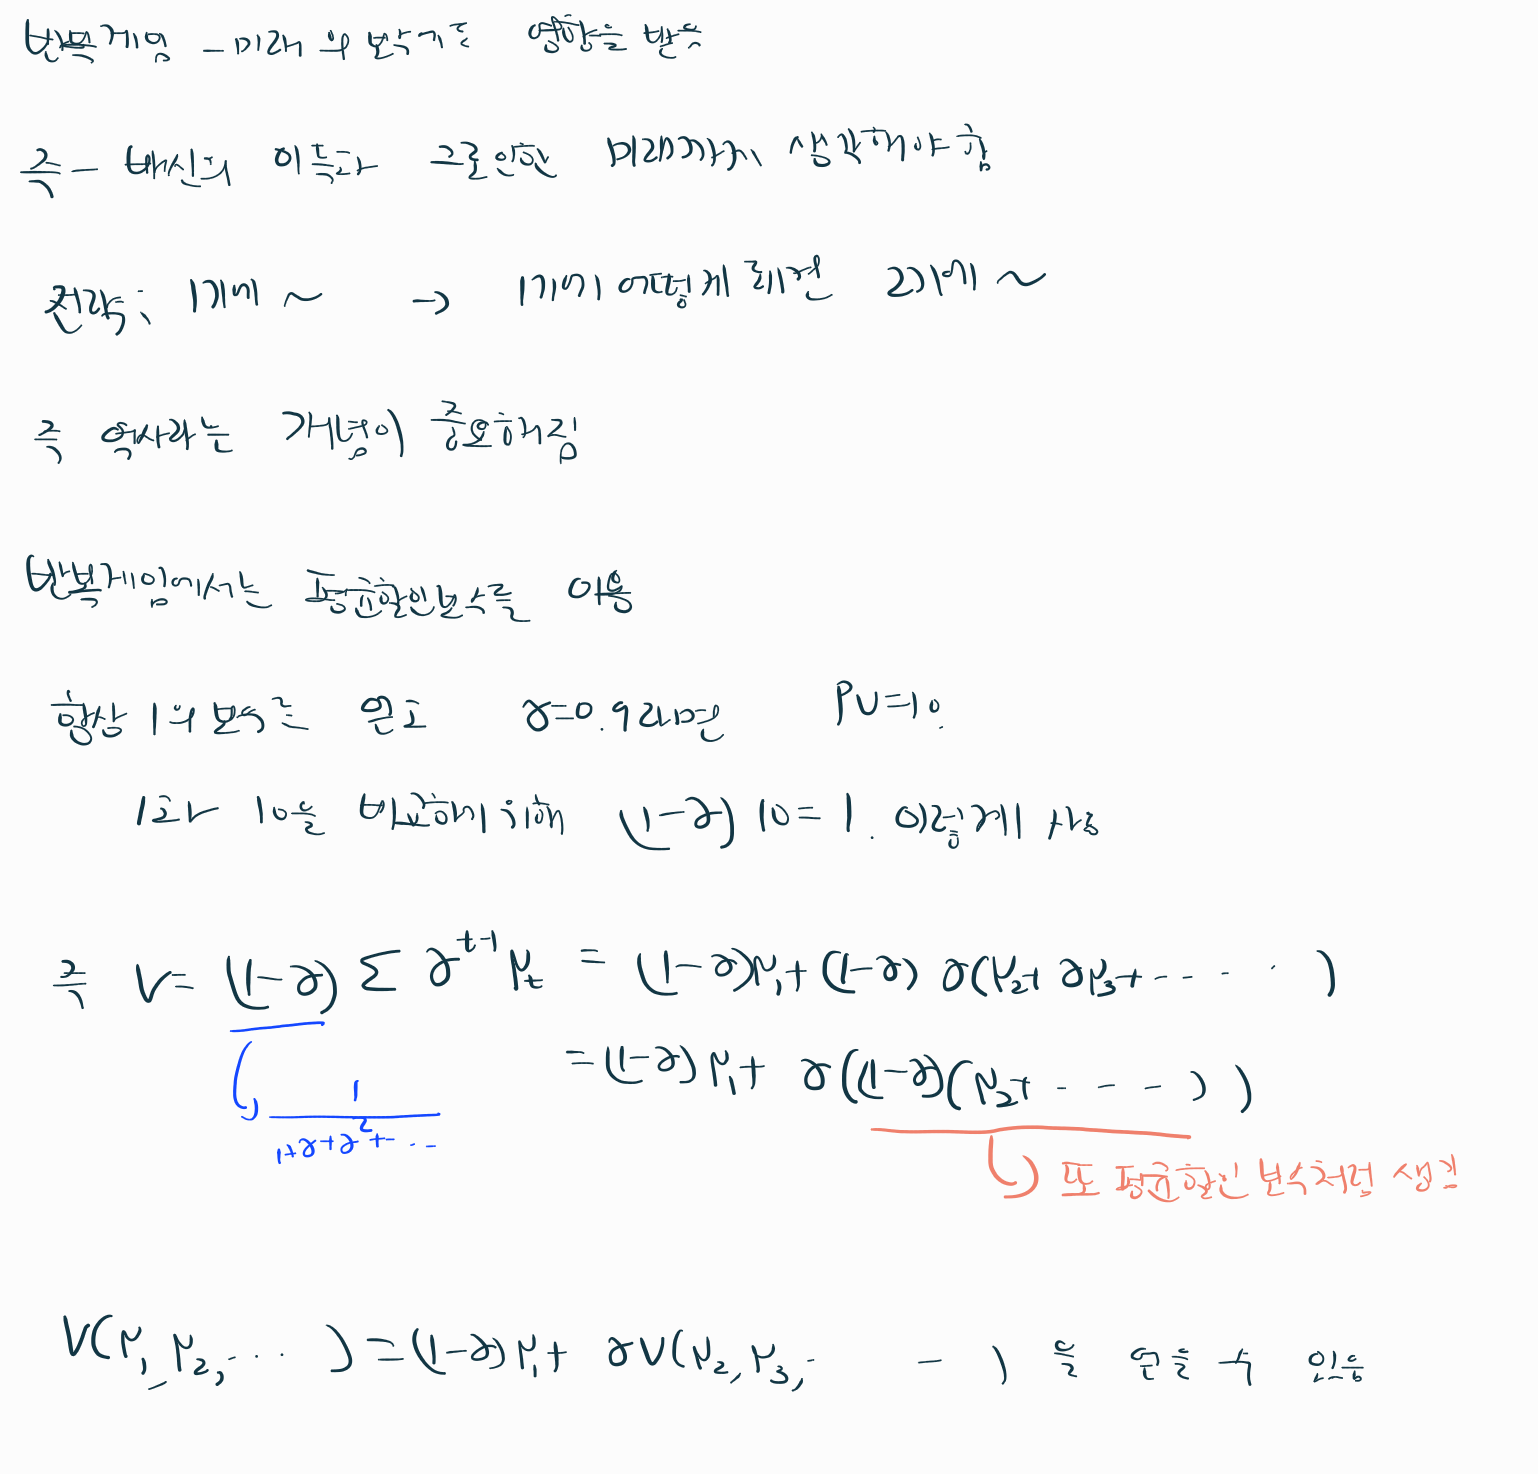 반복게임 - 미래의 보수가 영향을 받음
즉 - 배신의 이득과 그로인한 미래까지 생각해야함
전략; 1기에 ~ → 1기에 어떻게 되면 2기에 ~
즉 역사라는 개념이 중요해짐
반복게임에서는 평균할인보수를 이용
항상 1의 보수를 얻고 γ=0.9라면 PV=10.
1과 10을 비교하기위해 (1-γ)10=1. 이렇게 사용
즉 V= (1-γ) Σ γ^{t-1} μ_t = (1-γ)μ_1+(1-γ) γ(μ_2+ γμ_3+ ‐‐‐‐ )
=(1-γ) μ_1+ γ((1-γ)(μ_2+ ‐‐‐ ))
1/(1+γ+γ^2+…)
또 평균할인 보수처럼 생김
V(μ_1, μ_2, … ) =(1-γ)μ_1+ γV(μ_2, μ_3, … ) 을 얻을 수 있음